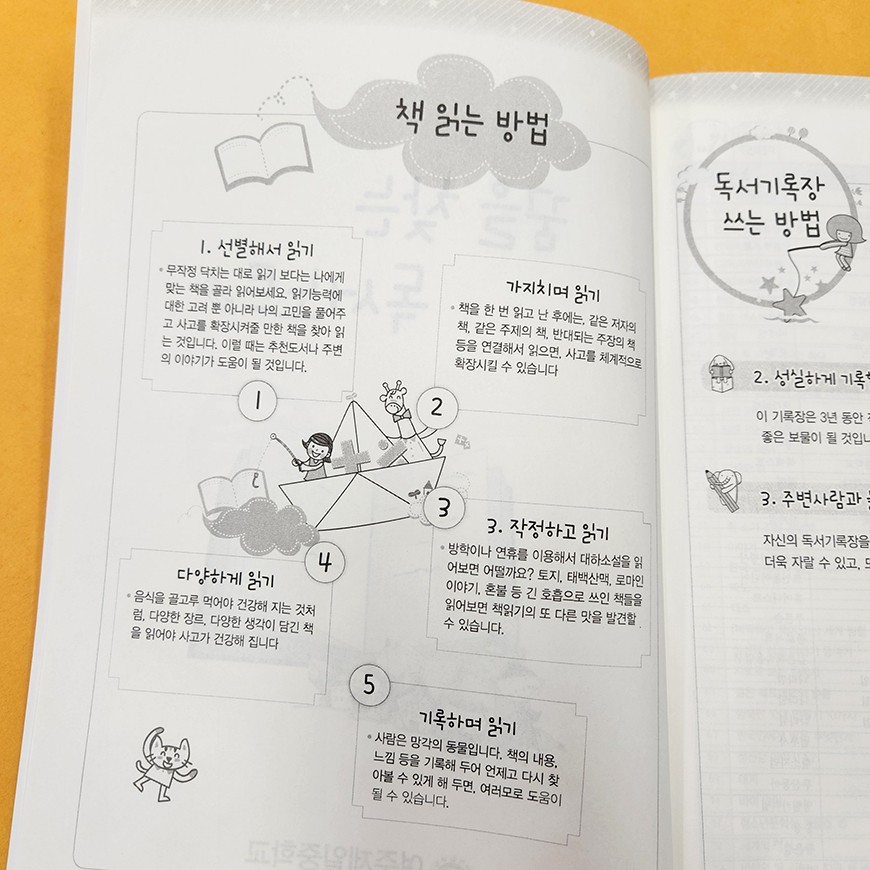 책 읽는 방법
1. 선별해서 읽기
• 무작정 닥치는 대로 읽기 보다는 나에게
맞는 책을 골라 읽어보세요. 읽기능력에
대한 고려 뿐 아니라 나의 고민을 풀어주
고 사고를 확장시켜줄 만한 책을 찾아 읽
는 것입니다. 이럴 때는 추천도서나 주변
의 이야기가 도움이 될 것입니다.
1
가지치며 읽기
• 책을 한 번 읽고 난 후에는, 같은 저자의
책, 같은 주제의 책, 반대되는 주장의 책
등을 연결해서 읽으면, 사고를 체계적으로
확장시킬 수 있습니다
2
3
3. 작정하고 읽기
• 방학이나 연휴를 이용해서 대하소설을 읽
어보면 어떨까요? 토지, 태백산맥, 로마인
이야기, 혼불 등 긴 호흡으로 쓰인 책들을
읽어보면 책읽기의 또 다른 맛을 발견할
수 있습니다.
4
다양하게 읽기
• 음식을 골고루 먹어야 건강해 지는 것처
럼, 다양한 장르, 다양한 생각이 담긴 책
을 읽어야 사고가 건강해 집니다
5
기록하며 읽기
• 사람은 망각의 동물입니다. 책의 내용,
느낌 등을 기록해 두어 언제고 다시 찾
아볼 수 있게 해 두면, 여러모로 도움이
될 수 있습니다.
독서기록장
쓰는 방법
2. 성실하게
이 기록장은 3년 동안
좋은 보물이 될
3. 주변사람과
자신의 독서기록장을
더욱 자랄 수 있고,